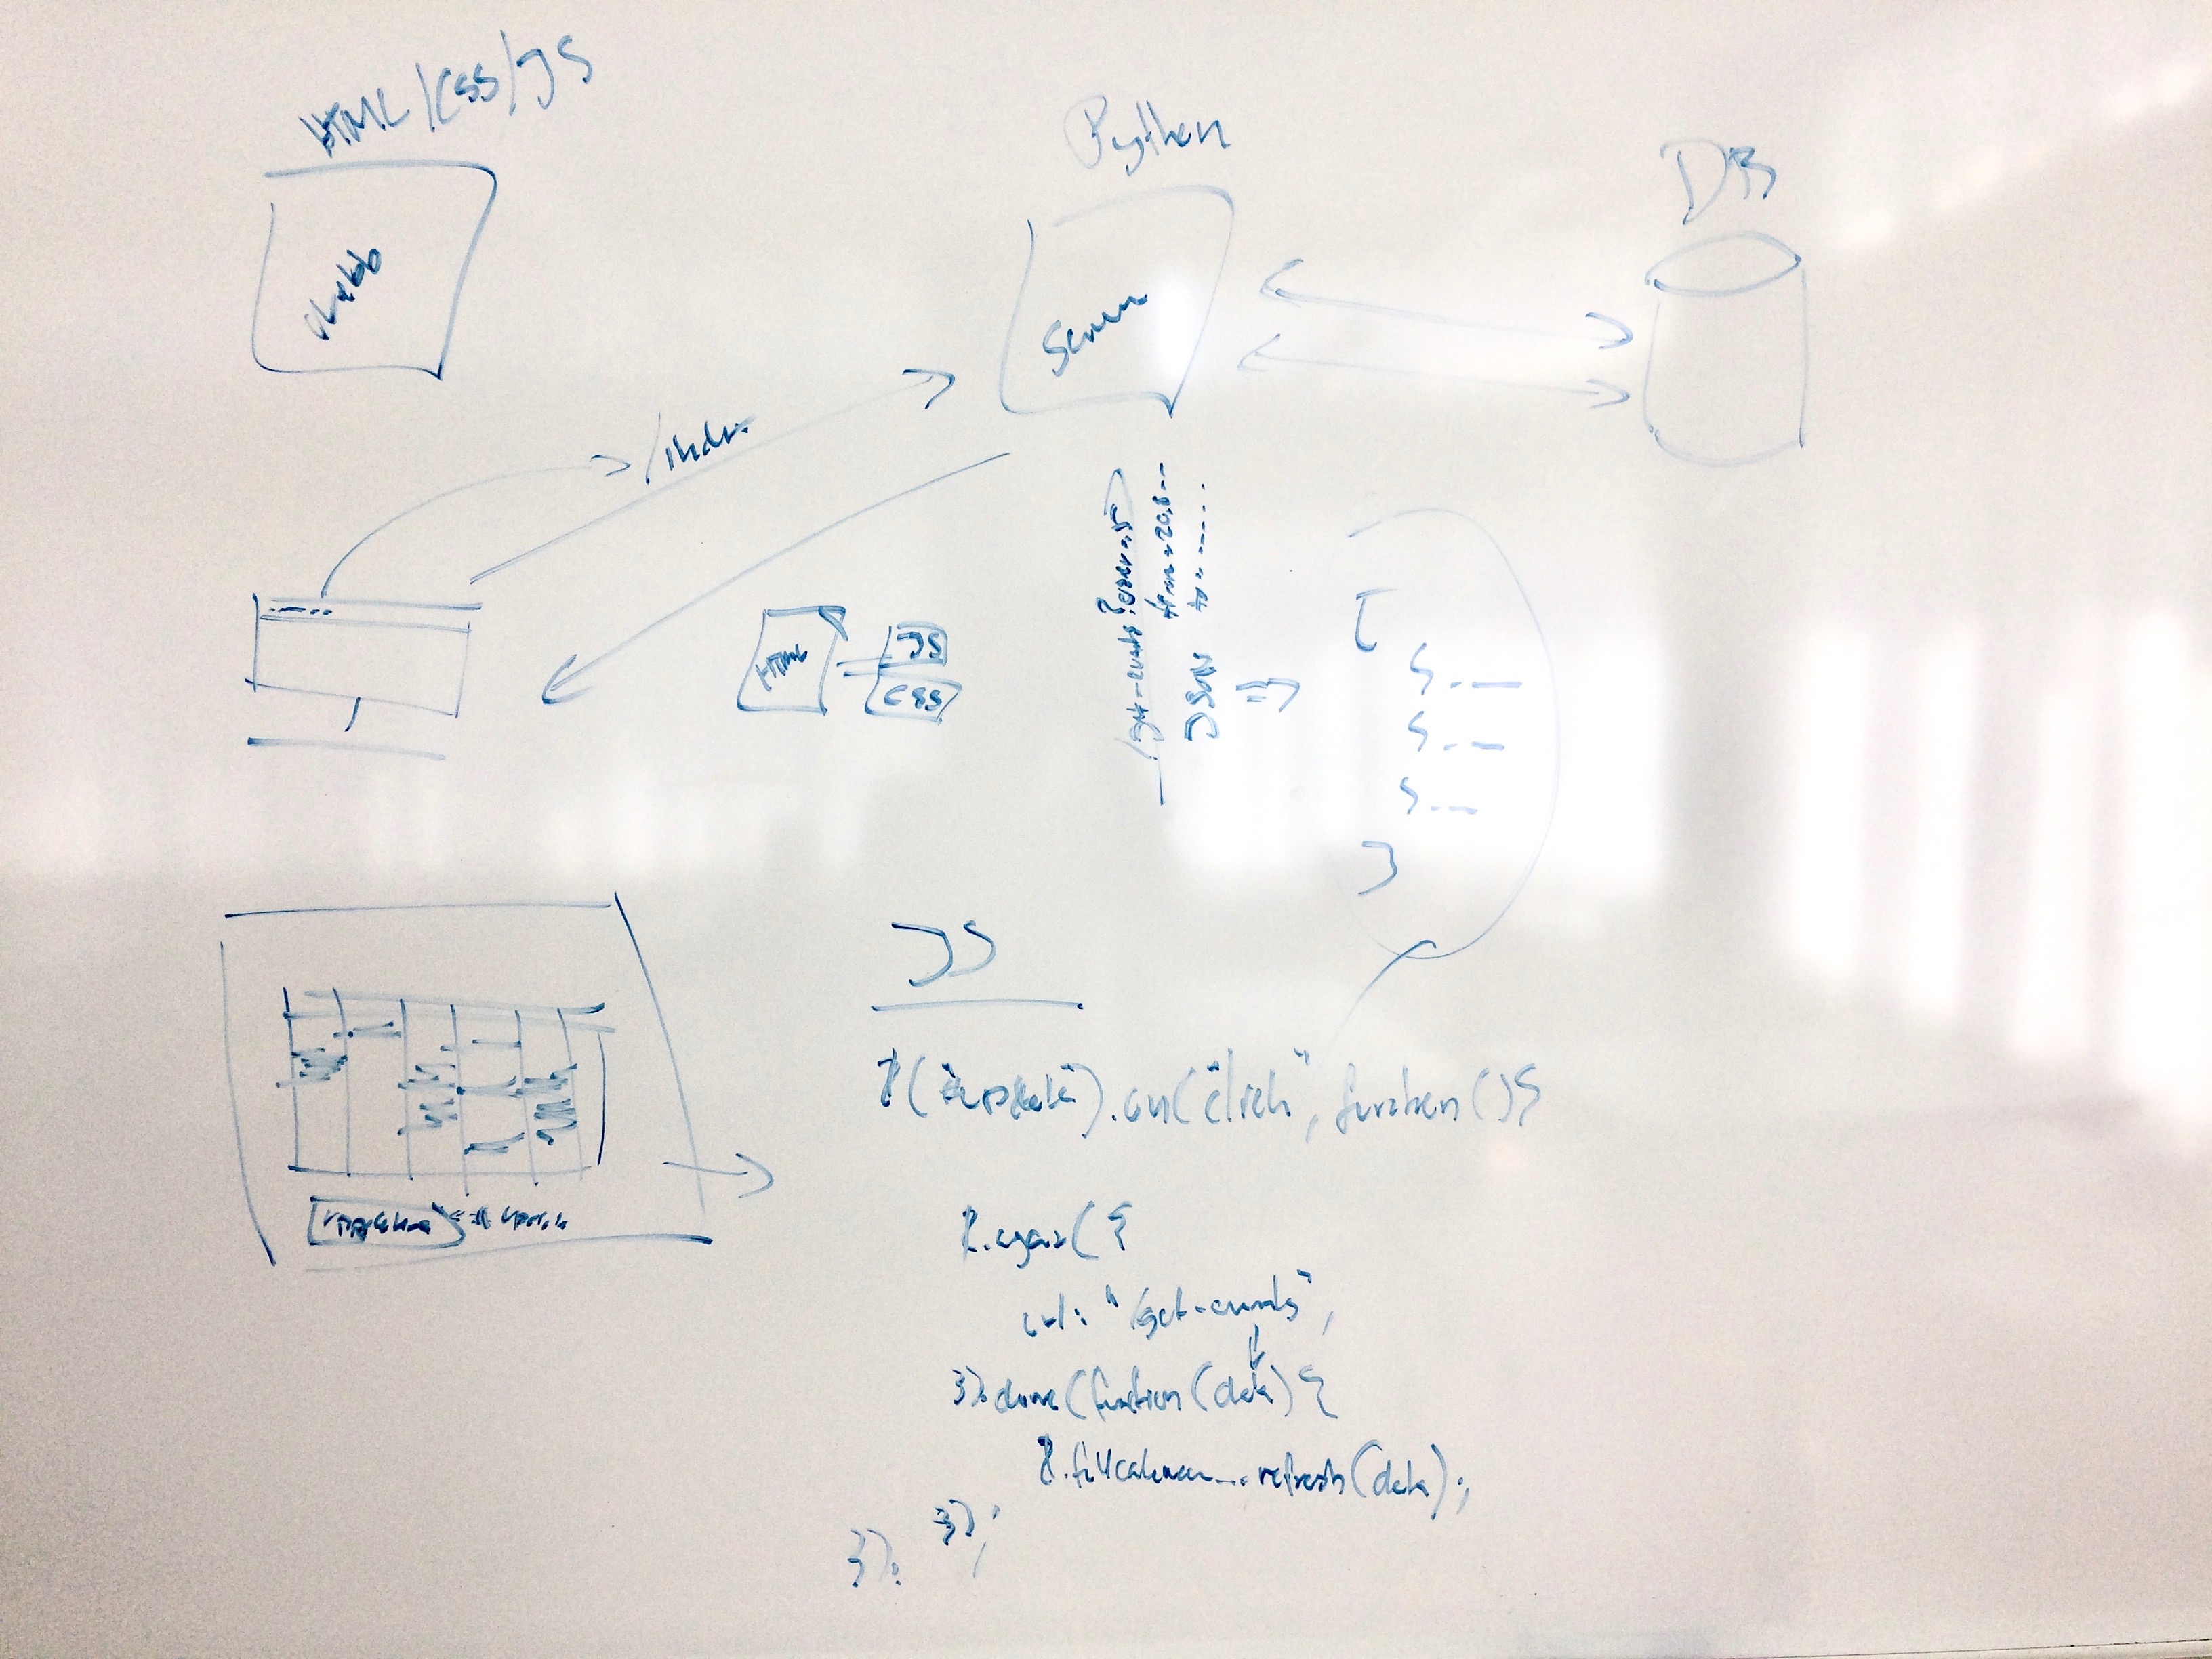 HTML/CSS/JS
Python
DB
Server
/index
HTML
JS
CSS
/get-events?
JSON
[
]
JS
$("#update").on("click", function(){
$.ajax({
url: "/get-events",
}).done(function(data){
$.fullcalendar....refresh(data);
});
});